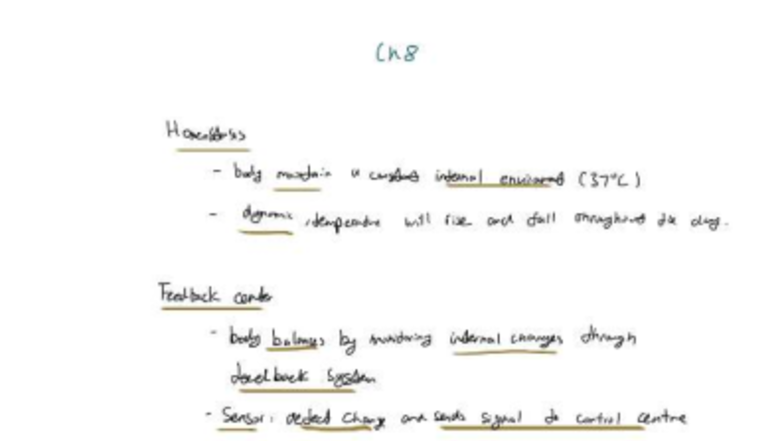 Ch 8
Homeostasis
- body maintain a constant internal environment (37°C)
- dynamic, temperature will rise and fall throughout the day.
Feedback center
- body balances by monitoring internal changes through
feedback system
- Sensor: detect change and sends signal to control centre